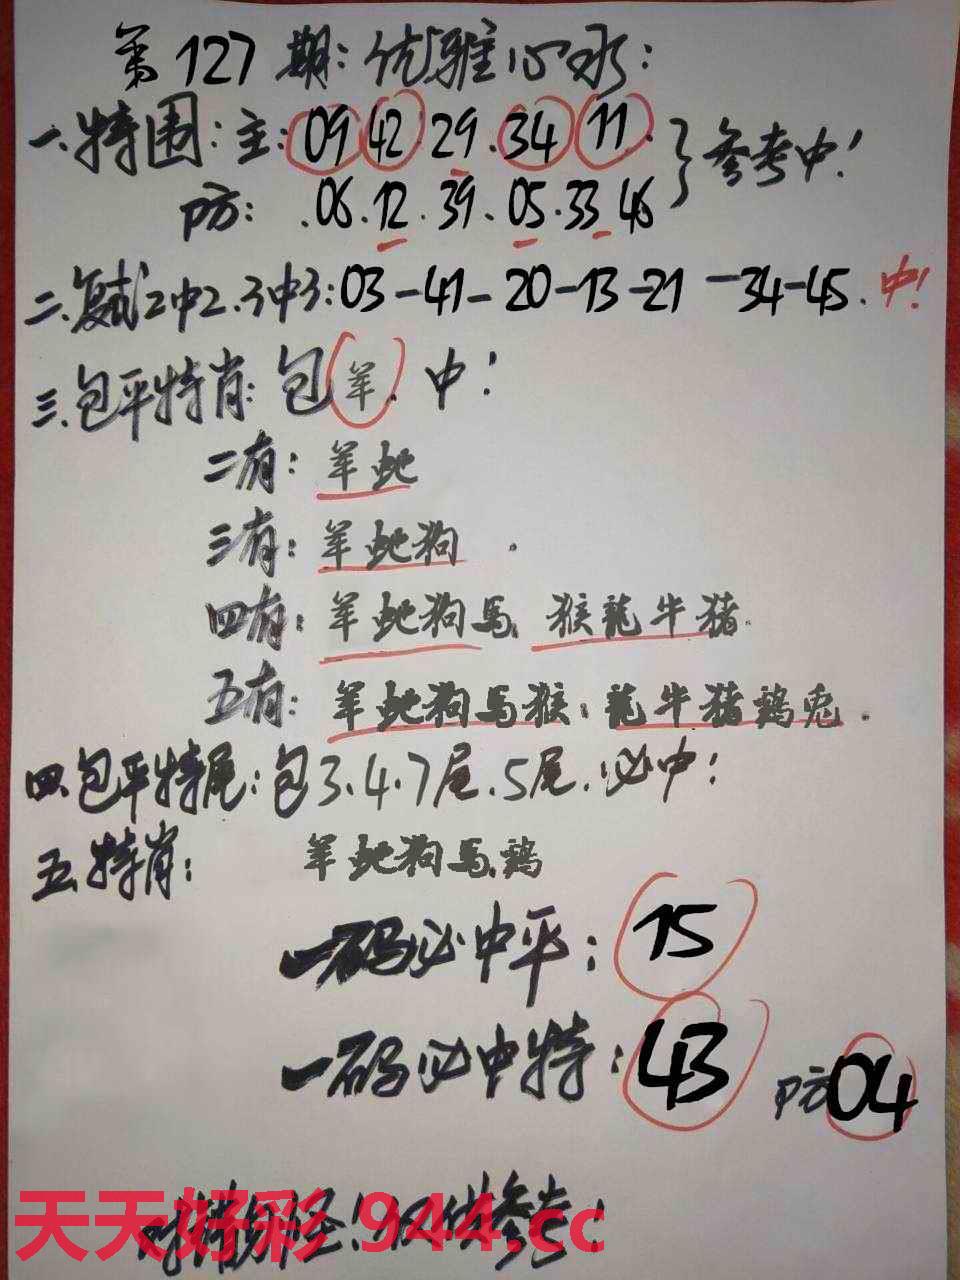 第127期:优雅心水:
一.特围:主:09 42 29.34 11.
防:.06.12.39.05.33 46
}参考中!
二.复式2中2.3中3:03-41-20-13-21-34-45.中!
三.包平特肖:包羊.中!
二有:羊蛇
三有:羊蛇狗.
四有:羊蛇狗马.猴龍牛猪.
五有:羊蛇狗马猴:龍牛猪鷄兎.
四.包平特尾:包3.4.7尾.5尾.必中!
五.特肖:羊蛇狗马.鷄
一码必中平:15
一码必中特:43 防04
对错勿怪!仅供参考!
天天好彩.944.cc